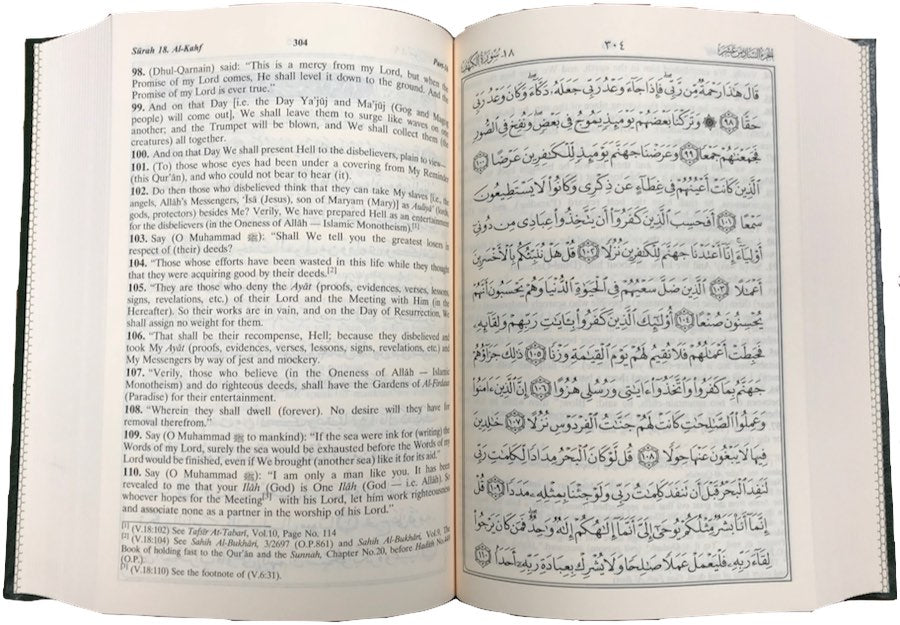 Sûrah 18. Al-Kahf
304
Part-16
98. (Dhul-Qarnain) said: "This is a mercy from my Lord, but when the
Promise of my Lord comes, He shall level it down to the ground. And the
Promise of my Lord is ever true."
99. And on that Day [i.e. the Day Ya'jûj and Ma'jûj (Gog and Magog
people) will come out], We shall leave them to surge like waves on one
another; and the Trumpet will be blown, and We shall collect them (the
creatures) all together.
100. And on that Day We shall present Hell to the disbelievers, plain to view—
101. (To) those whose eyes had been under a covering from My Reminder
(this Qur'ân), and who could not bear to hear (it).
102. Do then those who disbelieved think that they can take My slaves [i.e., the
angels, Allâh's Messengers, 'Îsâ (Jesus), son of Maryam (Mary)] as Auliyâ' (lords,
gods, protectors) besides Me? Verily, We have prepared Hell as an entertainment
for the disbelievers (in the Oneness of Allâh — Islamic Monotheism).[1]
103. Say (O Muhammad ﷺ): "Shall We tell you the greatest losers in
respect of (their) deeds?
104. "Those whose efforts have been wasted in this life while they thought
that they were acquiring good by their deeds.[2]
105. "They are those who deny the Ayât (proofs, evidences, verses, lessons,
signs, revelations, etc.) of their Lord and the Meeting with Him (in the
Hereafter). So their works are in vain, and on the Day of Resurrection, We
shall assign no weight for them.
106. "That shall be their recompense, Hell; because they disbelieved and
took My Ayât (proofs, evidences, verses, lessons, signs, revelations, etc.) and
My Messengers by way of jest and mockery.
107. "Verily, those who believe (in the Oneness of Allâh — Islamic
Monotheism) and do righteous deeds, shall have the Gardens of Al-Firdaus
(Paradise) for their entertainment.
108. "Wherein they shall dwell (forever). No desire will they have for
removal therefrom."
109. Say (O Muhammad ﷺ to mankind): "If the sea were ink for (writing) the
Words of my Lord, surely the sea would be exhausted before the Words of my
Lord would be finished, even if We brought (another sea) like it for its aid."
110. Say (O Muhammad ﷺ): "I am only a man like you. It has been
revealed to me that your Ilâh (God) is One Ilâh (God — i.e. Allâh). So
whoever hopes for the Meeting[3] with his Lord, let him work righteousness
and associate none as a partner in the worship of his Lord."
[1] (V.18:102) See Tafsîr At-Tabarî, Vol.10, Page No. 114
[2] (V.18:104) See Sahih Al-Bukhâri, 3/2697 (O.P.861) and Sahih Al-Bukhâri, Vol.9, The
Book of holding fast to the Qur'ân and the Sunnah, Chapter No.20, before Hadîth No.449
(O.P.).
[3] (V.18:110) See the footnote of (V.6:31).
الجزء السادس عشر
٣٠٤
١٨. سورة الكهف
قَالَ هَٰذَا رَحْمَةٌ مِّن رَّبِّي ۖ فَإِذَا جَاءَ وَعْدُ رَبِّي جَعَلَهُۥ دَكَّاءَ ۖ وَكَانَ وَعْدُ رَبِّي
حَقًّا ٩٨ ۞ وَتَرَكْنَا بَعْضَهُمْ يَوْمَئِذٍ يَمُوجُ فِي بَعْضٍ ۖ وَنُفِخَ فِي الصُّورِ
فَجَمَعْنَٰهُمْ جَمْعًا ٩٩ وَعَرَضْنَا جَهَنَّمَ يَوْمَئِذٍ لِّلْكَٰفِرِينَ عَرْضًا ١٠٠
الَّذِينَ كَانَتْ أَعْيُنُهُمْ فِي غِطَاءٍ عَن ذِكْرِي وَكَانُوا لَا يَسْتَطِيعُونَ
سَمْعًا ١٠١ أَفَحَسِبَ الَّذِينَ كَفَرُوا أَن يَتَّخِذُوا عِبَادِي مِن دُونِي
أَوْلِيَاءَ ۚ إِنَّا أَعْتَدْنَا جَهَنَّمَ لِلْكَٰفِرِينَ نُزُلًا ١٠٢ قُلْ هَلْ نُنَبِّئُكُم بِالْأَخْسَرِينَ
أَعْمَٰلًا ١٠٣ الَّذِينَ ضَلَّ سَعْيُهُمْ فِي الْحَيَوٰةِ الدُّنْيَا وَهُمْ يَحْسَبُونَ أَنَّهُمْ
يُحْسِنُونَ صُنْعًا ١٠٤ أُولَٰئِكَ الَّذِينَ كَفَرُوا بِـَٔايَٰتِ رَبِّهِمْ وَلِقَائِهِۦ
فَحَبِطَتْ أَعْمَٰلُهُمْ فَلَا نُقِيمُ لَهُمْ يَوْمَ الْقِيَٰمَةِ وَزْنًا ١٠٥ ذَٰلِكَ جَزَاؤُهُمْ
جَهَنَّمُ بِمَا كَفَرُوا وَاتَّخَذُوا ءَايَٰتِي وَرُسُلِي هُزُوًا ١٠٦ إِنَّ الَّذِينَ ءَامَنُوا
وَعَمِلُوا الصَّٰلِحَٰتِ كَانَتْ لَهُمْ جَنَّٰتُ الْفِرْدَوْسِ نُزُلًا ١٠٧ خَٰلِدِينَ
فِيهَا لَا يَبْغُونَ عَنْهَا حِوَلًا ١٠٨ قُل لَّوْ كَانَ الْبَحْرُ مِدَادًا لِّكَلِمَٰتِ رَبِّي
لَنَفِدَ الْبَحْرُ قَبْلَ أَن تَنفَدَ كَلِمَٰتُ رَبِّي وَلَوْ جِئْنَا بِمِثْلِهِۦ مَدَدًا ١٠٩ قُلْ
إِنَّمَا أَنَا بَشَرٌ مِّثْلُكُمْ يُوحَىٰ إِلَيَّ أَنَّمَا إِلَٰهُكُمْ إِلَٰهٌ وَٰحِدٌ ۖ فَمَن كَانَ يَرْجُوا
لِقَاءَ رَبِّهِۦ فَلْيَعْمَلْ عَمَلًا صَٰلِحًا وَلَا يُشْرِكْ بِعِبَادَةِ رَبِّهِۦ أَحَدًا ١١٠